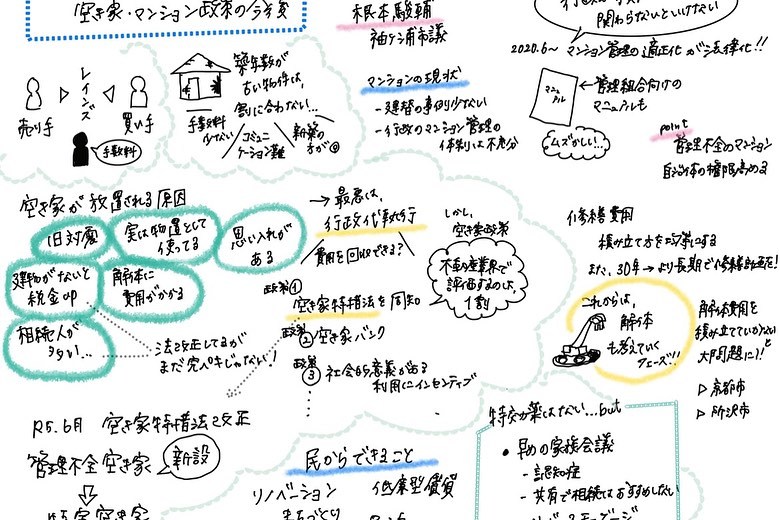 空き家・マンション政策の今後
根本駿輔
袖ヶ浦市議
関わらないといけない
2020.6~ マンション管理の適正化が法律化!!
売り手
レインズ
買い手
手数料
築年数が
古い物件は、
割に合わない…
手数料
少ない
コミュニ
ケーション難
新築の
方が
マンションの現状
- 建替の事例少ない
- 行政のマンション管理の
体制は不充分
マニュアル
← 管理組合向けの
マニュアルも
ムズかしい…
point
管理不全のマンション
自治体の権限高める
空き家が放置される原因
旧耐震
実は物置として
使ってる
思い入れが
ある
建物がないと
税金up
解体に
費用がかかる
相続人が
多い…
法改正してるが
まだ完ペキじゃない!
→ 最悪は、
行政代執行
費用を回収できる?
しかし、
空き家政策
不動産業界で
評価するのは、
1割
政策①
空き家特措法を周知
政策
② 空き家バンク
政策
③ 社会的意義がある
利用にインセンティブ
修繕費用
積み立て方を均等にする
また、30年→より長期で修繕計画を!
これからは、
解体
も考えていく
フェーズ!!
解体費用を
積み立てていかないと
大問題に!!
▷ 京都市
▷ 所沢市
R5.6月 空き家特措法改正
管理不全空き家
新設
特定空き家
民からできること
リノベーション
まちづくり
低廉型賃貸
特効薬はない…but
• 早めの家族会議
- 認知症
- 共有で相続はおすすめしない